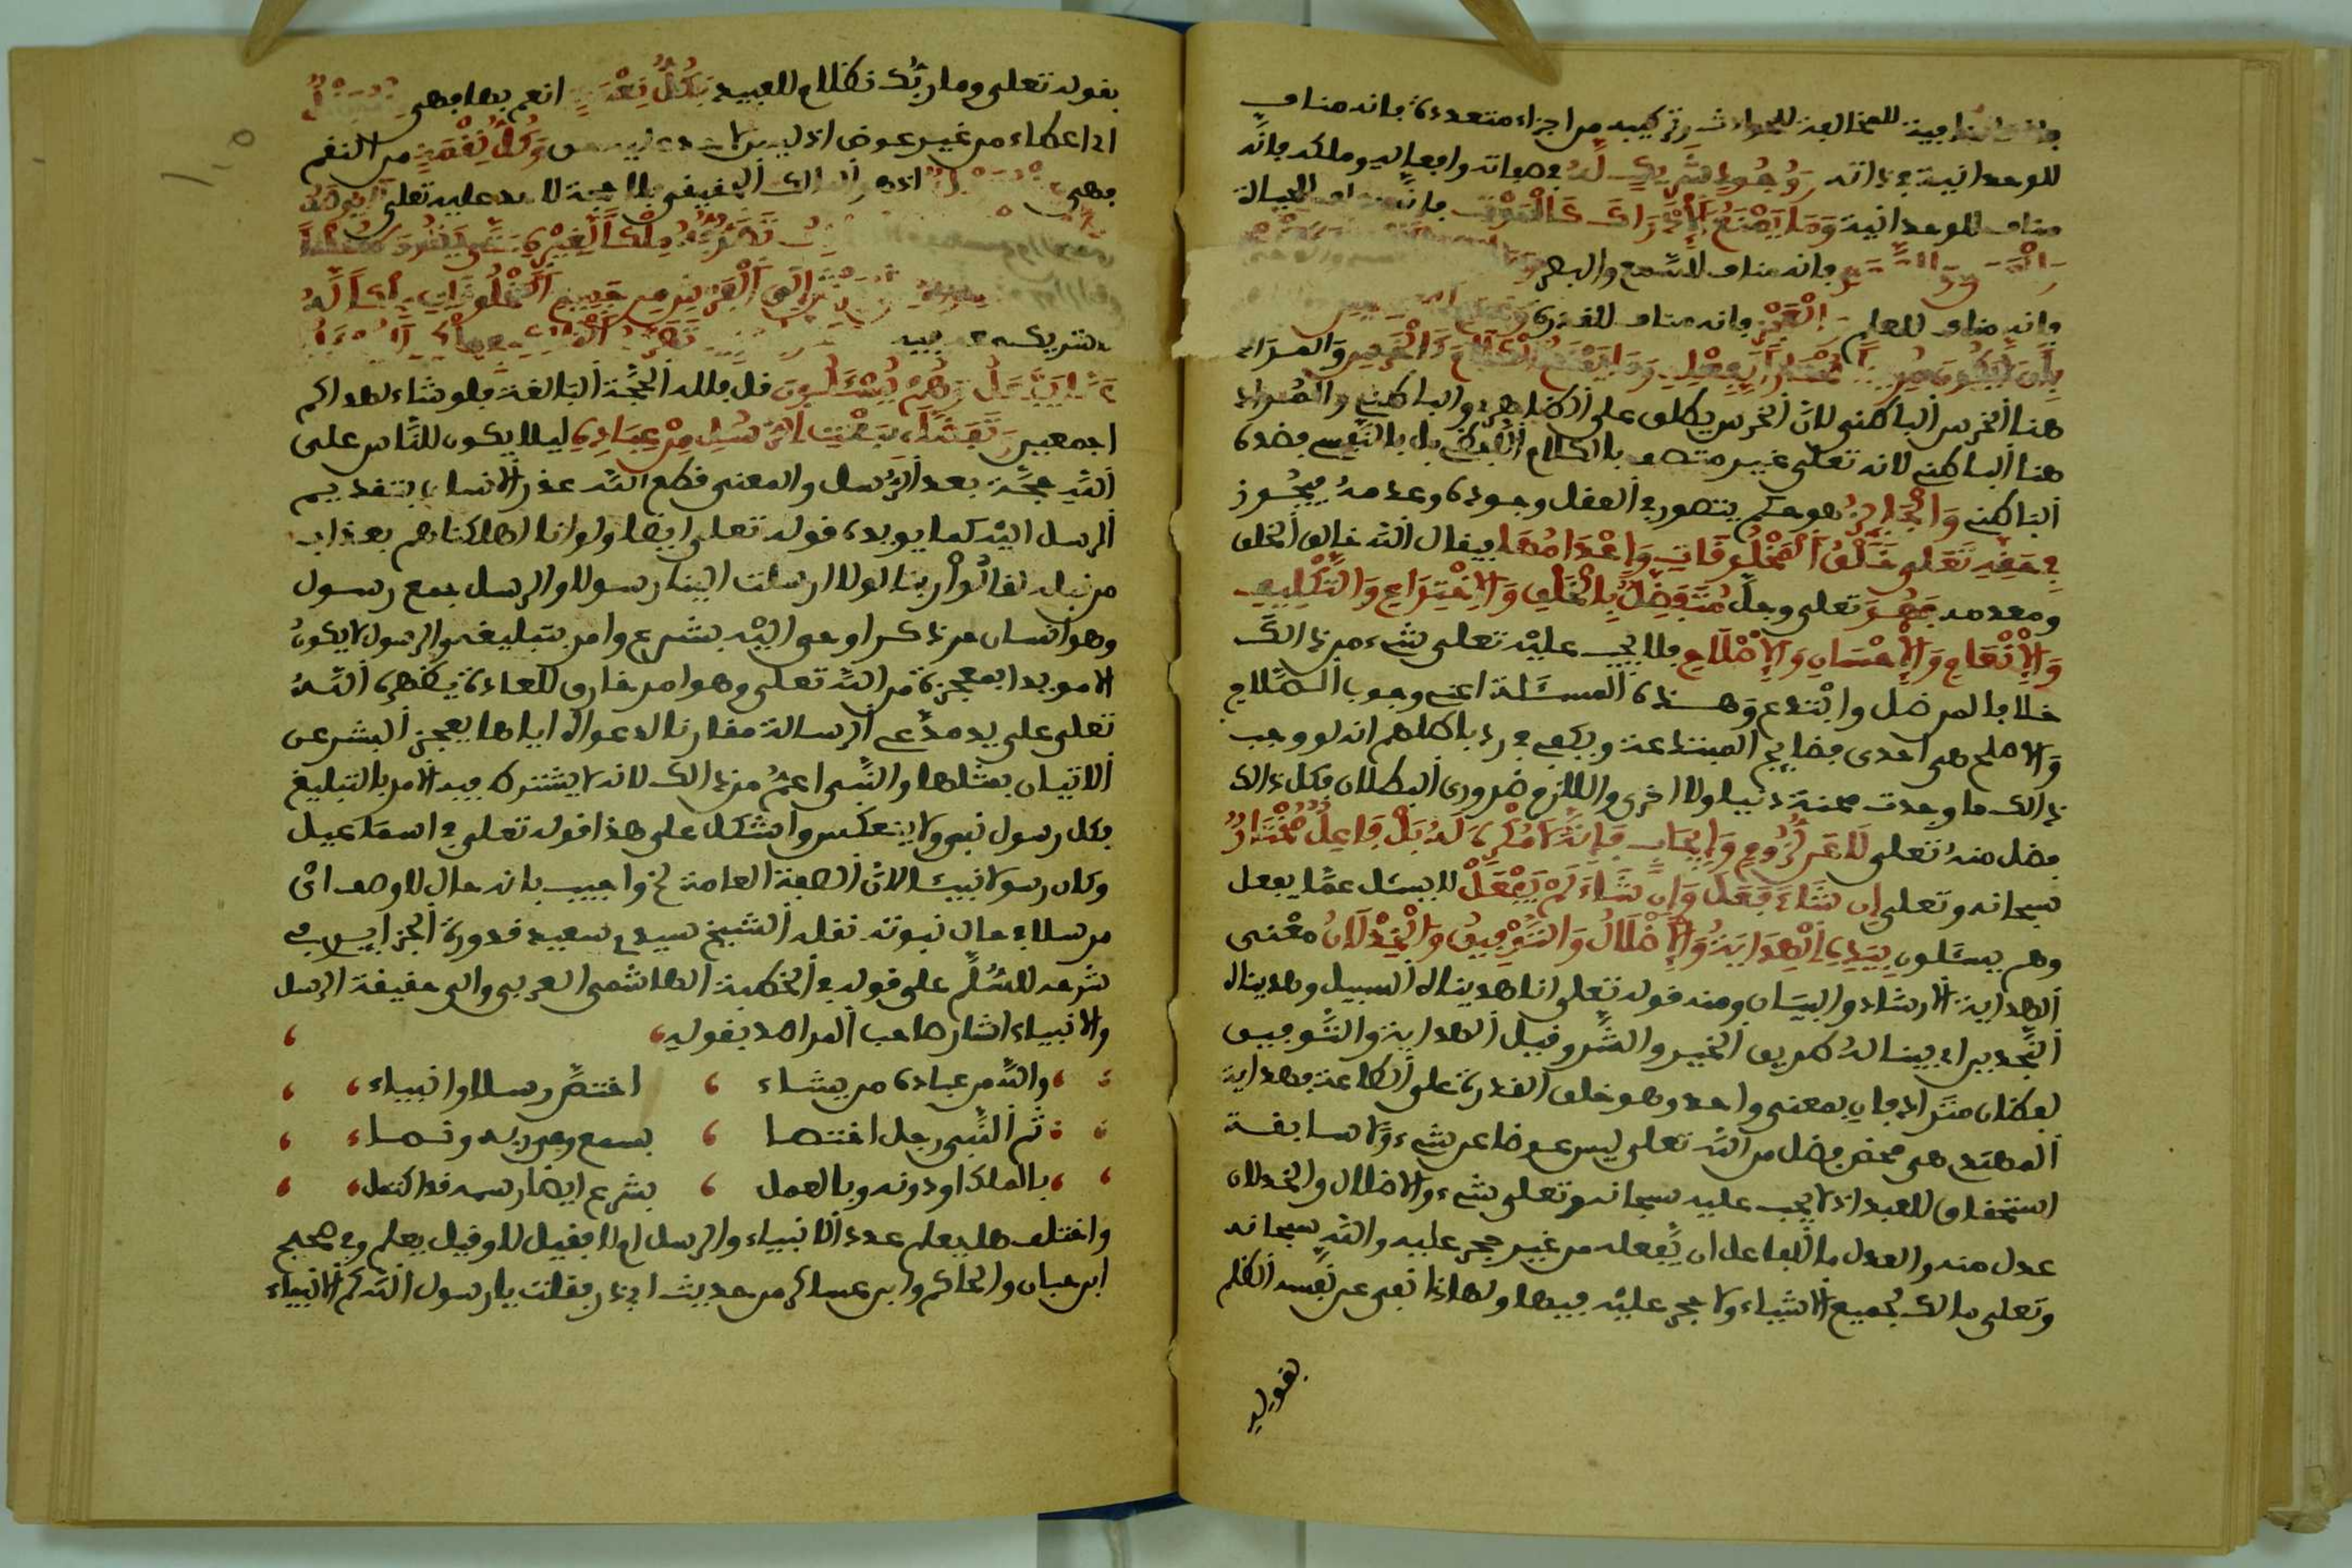 للمخالفة للحوادث وتركيبه من اجزاء متعددة فانه مناف
للوحدانية في ذاته وُجُودِ شَرِيكٍ لَهُ في صفاته وافعاليه وملكه فانَّه
مناف للوحدانية وَمَا يَمْنَعُ الْإِدْرَاكَ كَالْمَوْتِ فانه مناف للحياة
فانه مناف للسَّمع والبصر
فانه مناف للعلم الْعَجْزِ فانه مناف للقدرة
وَمَا يَمْنَعُ الْكَلَامَ كَالْخَرَسِ وَالمراد
هنا الخرس الباطني لان الخرس يطلق على الظاهري والباطني والمراد
هنا الباطني لانه تعلى غير متصف بالكلام اللفظي بل بالنفسي فضده
الباطني وَالْجَائِزُ هو حكم يتصور في العقل وجوده وعدمهُ فيجُوز
فِي حَقِّهِ تَعَلى خَلْقُ الْمَخْلُوقَاتِ وَإِعْدَامُهَا فيقال الله خالق الخلق
ومعدمه فَهُوَ تعلى وجلَّ مُتَفَضِّلٌ بِالْخَلْقِ وَالِاخْتِرَاعِ وَالتَّكْلِيفِ
وَالْإِنْعَامِ وَالْإِحْسَانِ وَالْإِصْلَاحِ فلا يجب عليْه تعلى شيء من ذالك
خلافا لمن ضل وابْتدع وهذه المسئلة اعني وجوب الصَّلاح
والاصلح هى احدى فضايح المبتدعة ويكفي في رد باطلهم انه لو وجب
ذالك ما وجدت محنة دنيا ولا اخرى واللازم ضروري البطلان فكل ذالك
فضل منهُ تعلى لَا عَن لُّزُومٍ وَإِيجَابٍ فَإِنَّهُ لَا مُكْرِهَ لَهُ بَلْ فَاعِلٌ مُخْتَارٌ
سبحانه وتعلى إِن شَاءَ فَعَلَ وَإِن شَاءَ لَمْ يَفْعَلْ لا يسئل عمَّا يفعل
وهم يسئلون بِيَدِهِ الْهِدَايَةُ وَالْإِضْلَالُ وَالتَّوْفِيقُ وَالْخِذْلَانُ معْنى
الهداية الارشاد والبيان ومنه قوله تعلى انا هديناه السبيل وهديناه
النَّجدين اي بينا لهُ طريق الخير والشَّر وقيل الهداية والتَّوفيق
لفظان مترادفان بمعنى واحد وهو خلق القدرة على الطاعة فهداية
المهتدي هي محض فضل من الله تعلى ليس عوضا عن شيء ولا سابقة
استحقاق للعبد اذ لا يجب عليه سبحانه وتعلى شيء والاضلال والخذلان
عدل منه والعدل ما للفاعل ان يَّفعله من غير حجر عليه والله سبحانه
وتعلى مالك لجميع الاشياء ولا حجر عليْه فيها ولهاذا نفى عن نفسه الظلم
بقوله
بقوله تعلى وما ربُّك بظلام للعبيد فَكُلُّ نِعْمَةٍ انعم بها فهى
اي اعطاء من غير عوض وَكُلُّ نِقْمَةٍ من النقم
فهى اذ هو المالك الحقيقي فلا حجة لاحد عليه تعلى
إِلَى الْعَرْشِ مِن جَمِيعِ الْمَخْلُوقَاتِ
لَا يُسْئَلُ عَمَّا يَفْعَلُ وَهُمْ يُسْئَلُونَ قل فلله الحُجَّة البالغة فلو شاء لهداكم
اجمعين وَتَفَضَّلَ بِبَعْثِ الرُّسُلِ مِنْ عِبَادِهِ ليلا يكون للنَّاس على
الله حجَّة بعد الرُّسل والمعنى قطع الله عذر الانسان بتقديم
الرسل اليْه كما يويده قوله تعلى ايضا ولو انا اهلكناهم بعذاب
من قبله لقالُوا ربنا لولا ارسلت الينا رسولا والرسل جمع رسول
وهو انسان حر ذكر اوحى اليْه بشرع وامر بتبليغه والرسول لا يكون
الا مويدا بمعجزة من الله تعلى وهو امر خارق للعادة يظهره الله
تعلى على يد مدَّعي الرسالة مقارنا لدعواه اياها يعجز البشر عن
الاتيان بمثلها والنَّبي اعمُّ من ذالك لانه لا يشترط فيه الامر بالتبليغ
فكل رسول نبي ولا ينعكس واشكل على هذا قوله تعلى في اسماعيل
وكان رسولا نبيئا لان الصفة العامة الخ واجيب بانه حال لا وصف اي
مرسلا في حال نبوته نقله الشيخ سيدي سعيد قدورة الجزايري في
شرحه للسُّلَّم على قوله في الخطبة الهاشمي العربي والى حقيقة الرسل
والانبياء اشار صاحب المراصد بقوله
والله من عباده من يشاء اختصَّ رسلا وانبياء
ثم النَّبي رجل اختصا بسمع وحي ربه ونصا
بالملك او دونه وبالعمل بشرع ايضا رسمه قد اكتمل
واختلف هل يعلم عدد الانبياء والرسل ام لا فقيل لا وقيل يعلم وفي صحيح
ابن حبان والحاكم وابن عساكر من حديث ابي ذر فقلت يا رسول الله كم الانبياء